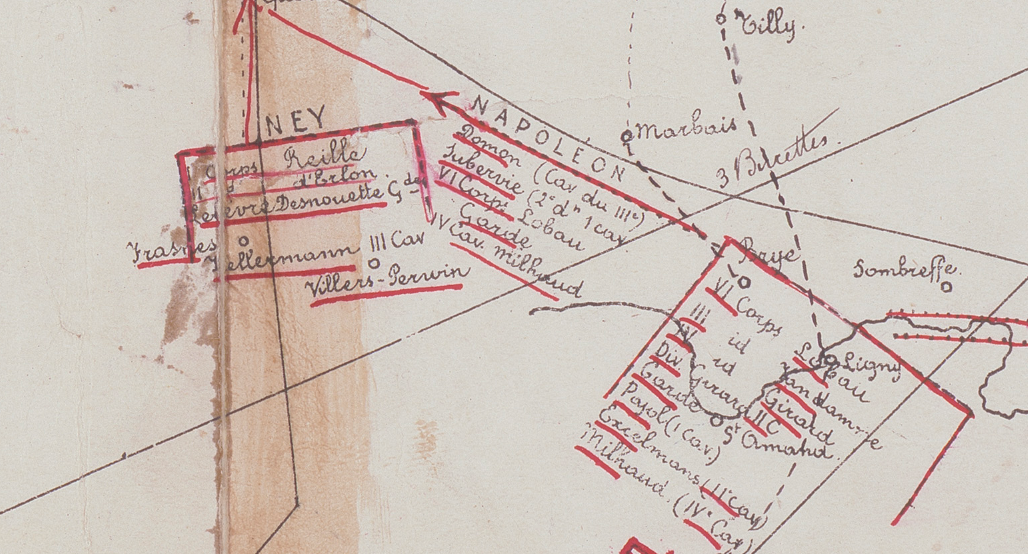 Tilly.
NEY
Corps Reille
d'Erlon.
Lefevre Desnouette G de
Frasnes
Kellermann III Cav
Villers-Perwin
NAPOLEON
Domon (Cav du IIIe)
Subervie (2e dn 1 cav
VI Corps Lobau
Garde
IV Cav. Milhaud
Marbais
3 Burettes.
Brye
Sombreffe.
Ligny
VI Corps Lobau
III id Vandamme
IV id Girard
Div. Girard II C
Garde
St Amand.
Pajol (1 Cav)
Excelmans (IIe Cav)
Milhaud. (IVe Cav)